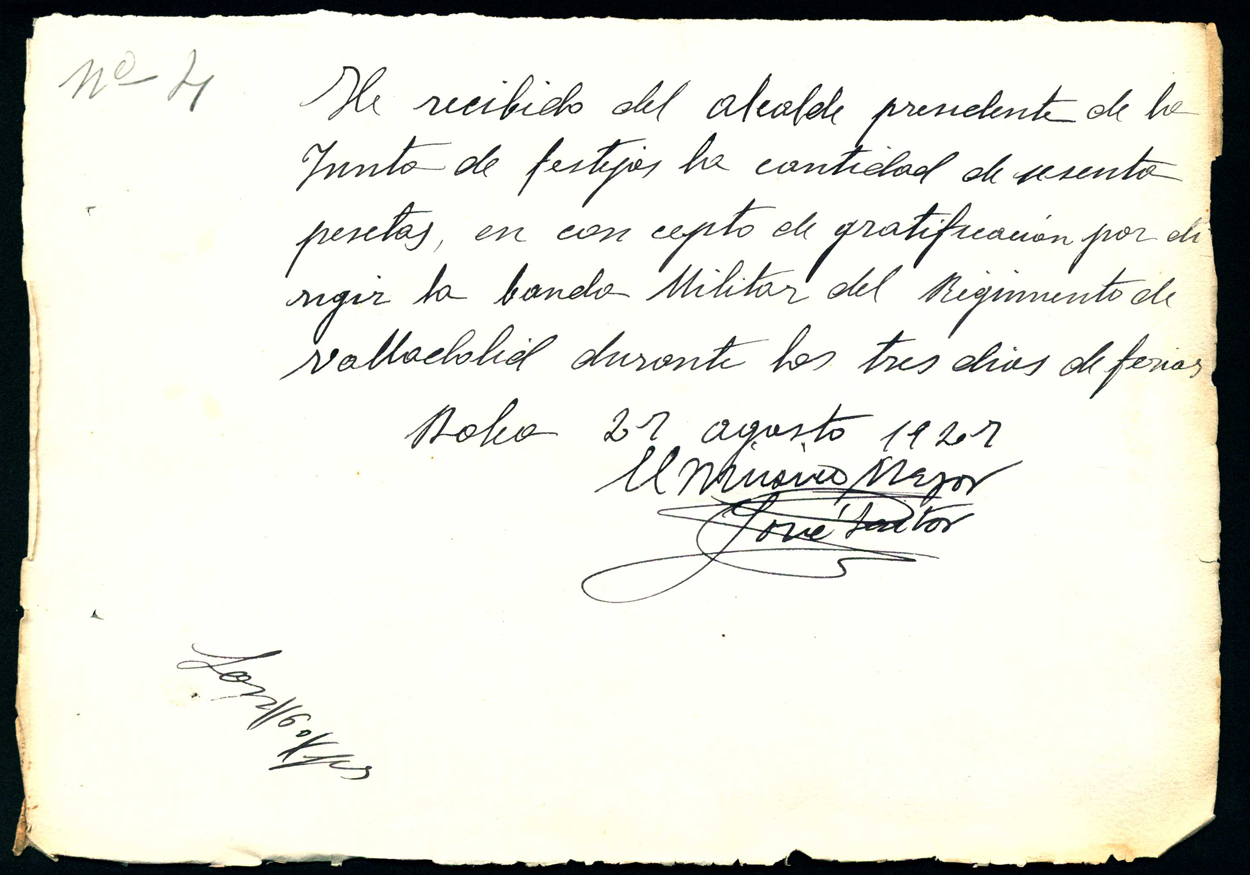 Nº 4
He recibido del alcalde presidente de la
Junta de festejos la cantidad de sesenta
pesetas, en concepto de gratificación por di
rigir la banda Militar del Regimiento de
Valladolid durante los tres dias de ferias
27 agosto 1927
El Musico Mayor
José